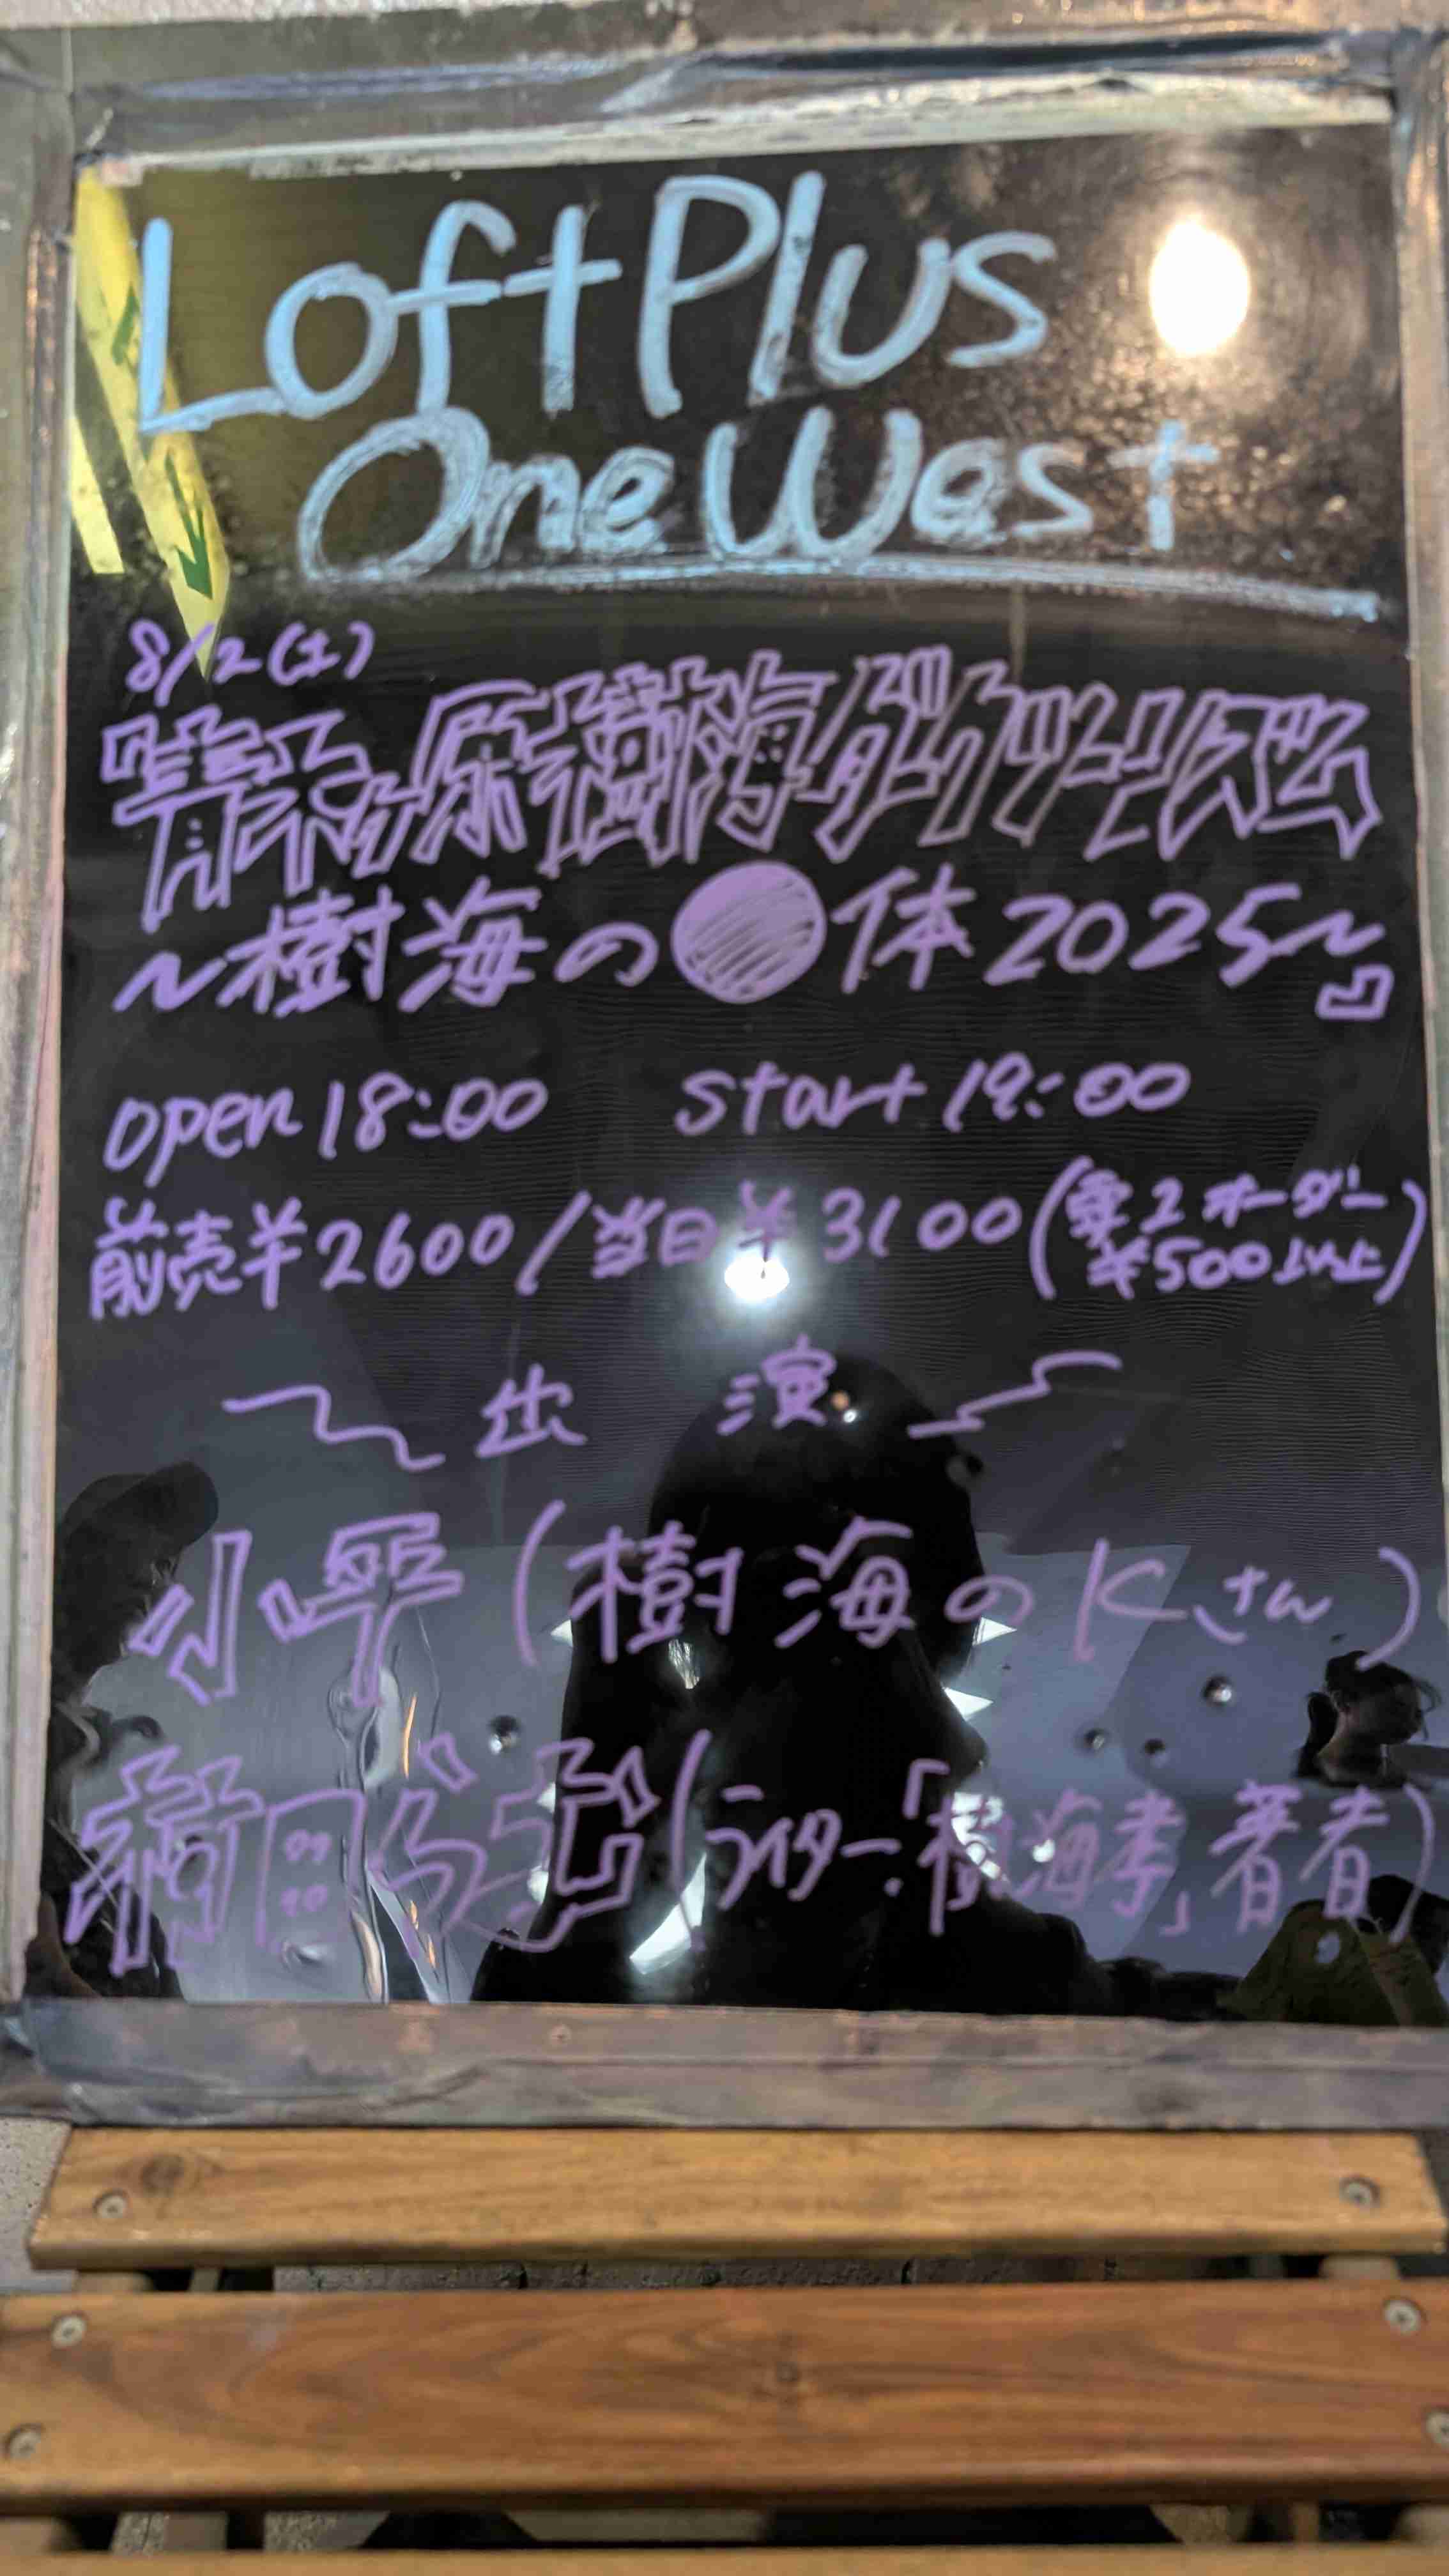 Loft Plus
One West
8/2(土)
『青木ヶ原樹海ダークツーリズム
〜樹海の●体2025〜』
open 18:00 start 19:00
前売¥2600/当日¥3100(要2オーダー
¥500以上)
出 演
小平(樹海のKさん)
村田らむ(ライター・「樹海考」著者)